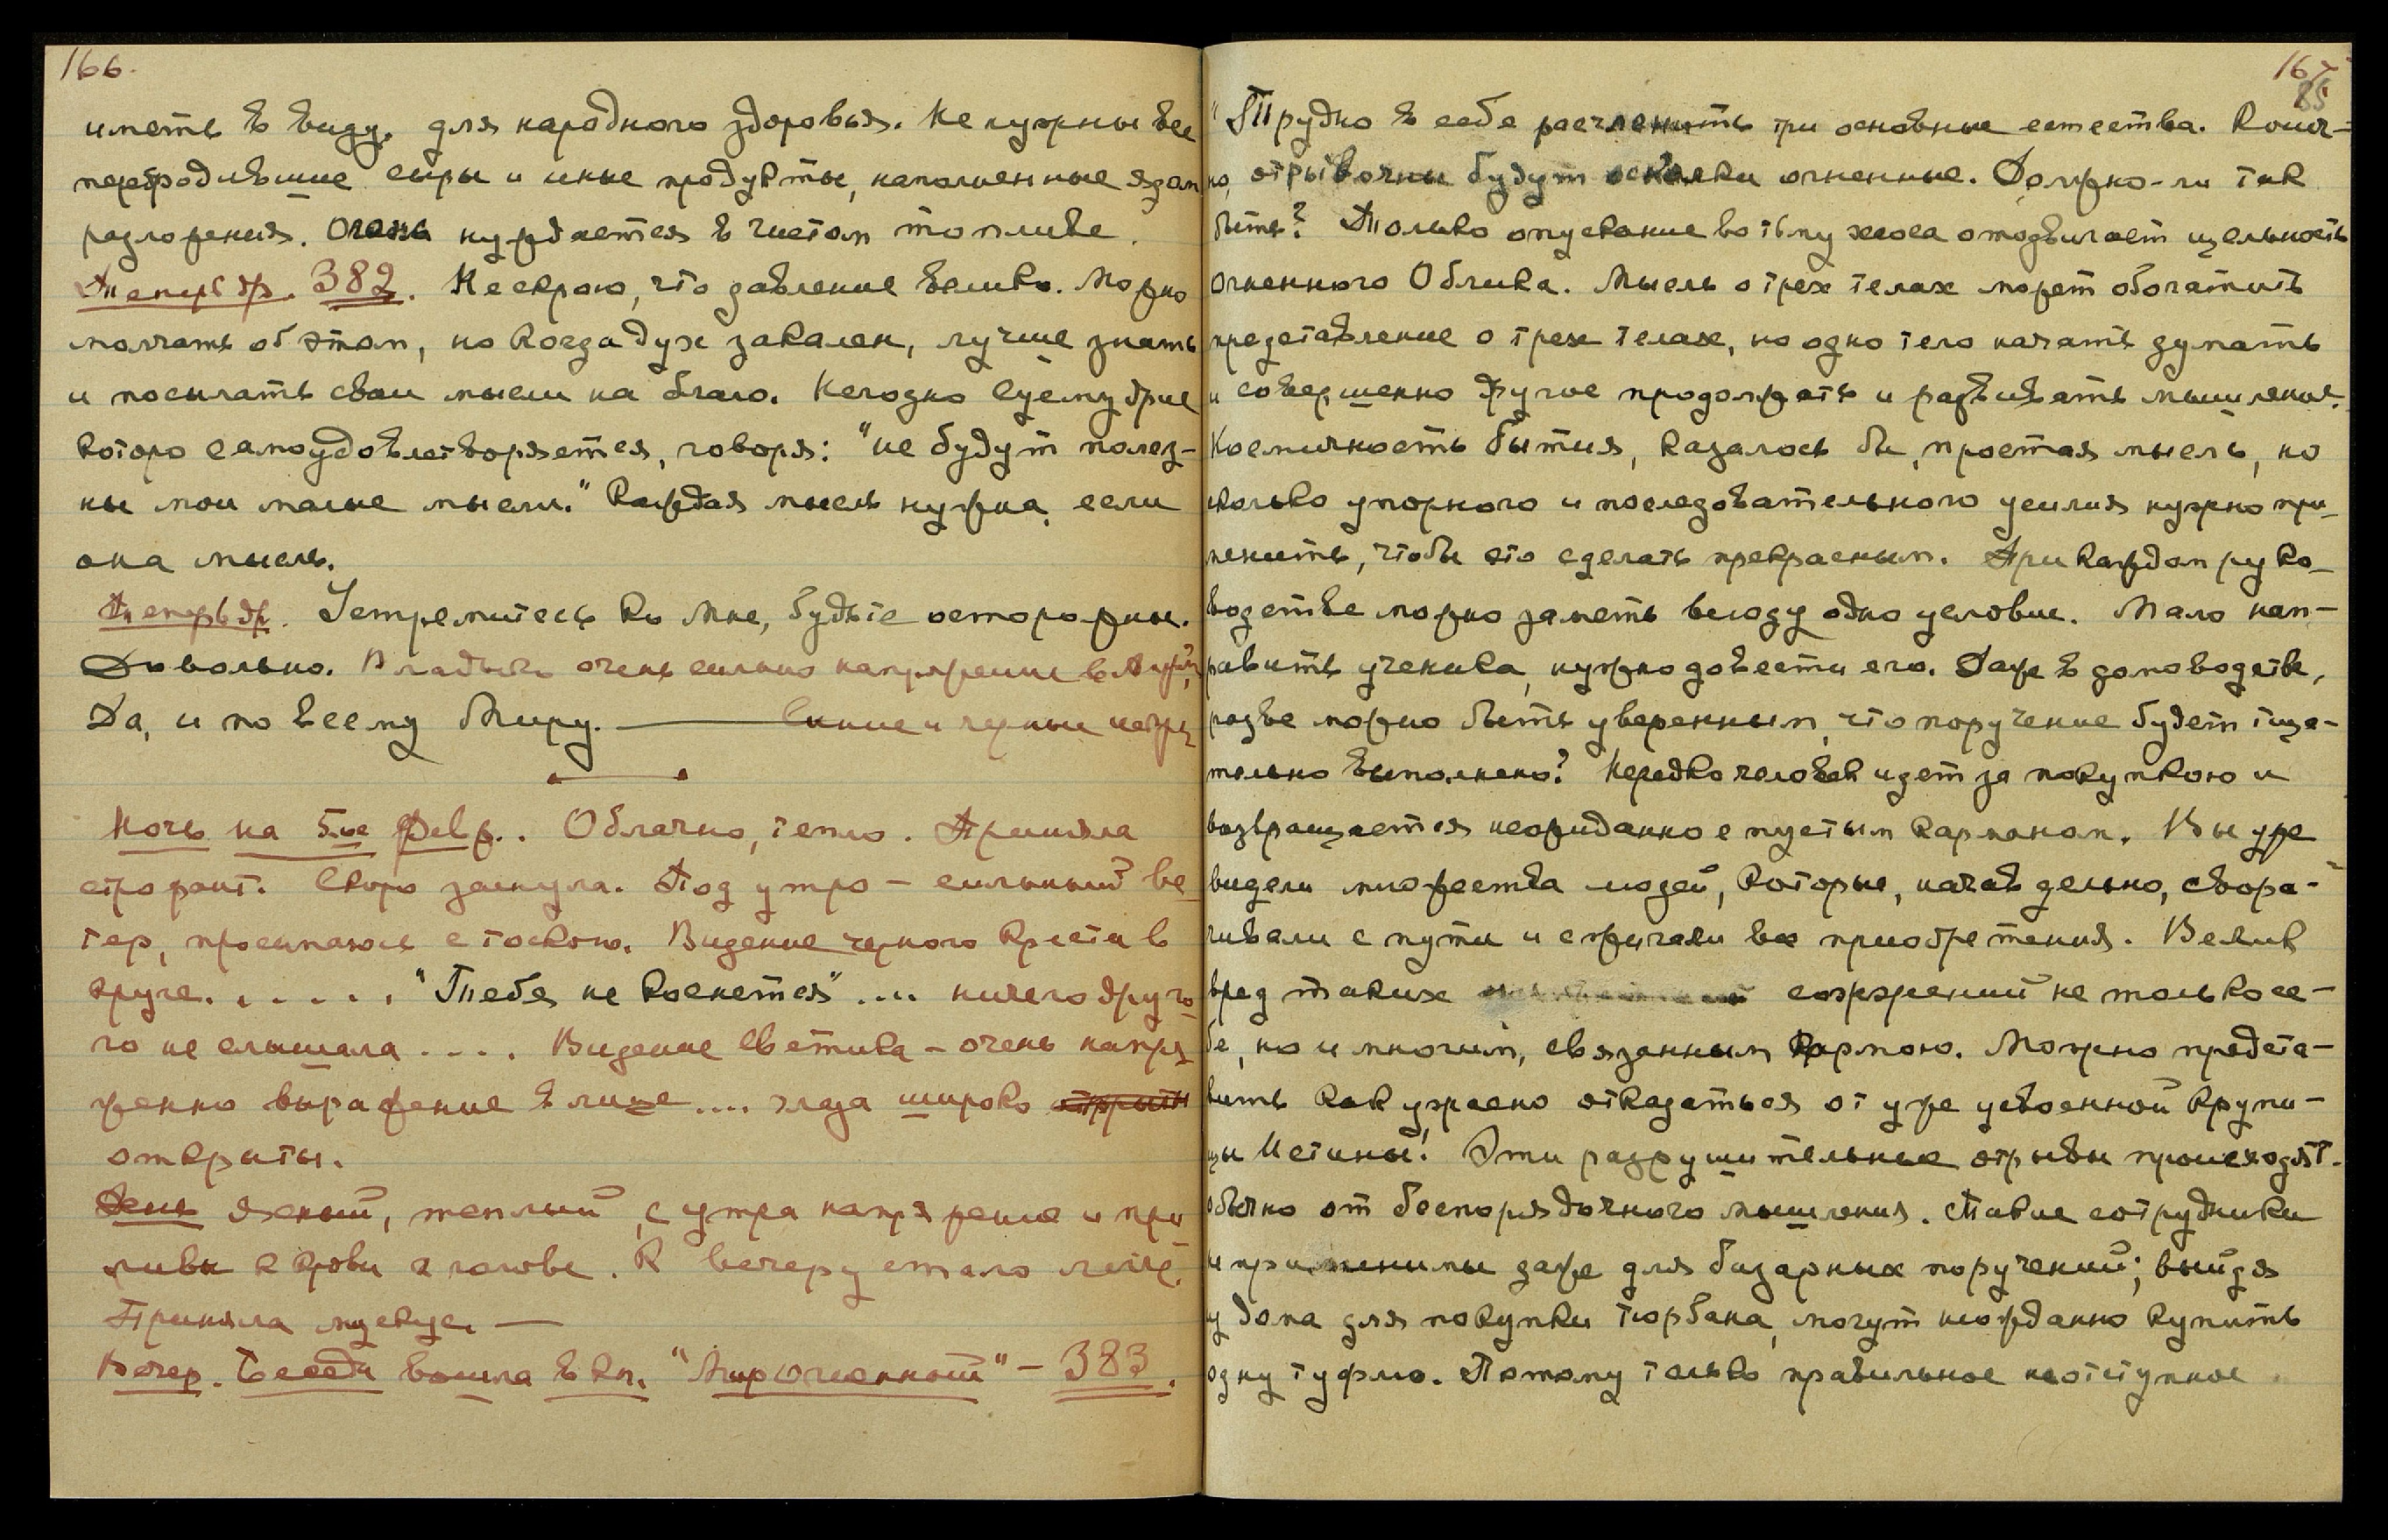 166.
иметь в виду. для народного здоровья. Не нужны все
перебродившие сыры и иные продукты, наполненные ядам
разложения. Огонь нуждается в чистом топливе.
Теперь др. 382. Не скрою, что давление велико. Можно
молчать об этом, но когда дух закален, лучше знать
и посылать свои мысли на благо. Негодно суемудрие
которо самоудовлетворяется, говоря: "не будут полез-
ны мои малые мысли." Каждая мысль нужна, если
она мысль.
Теперь др. Устремитесь ко Мне, будьте осторожны.
Довольно. Владыка очень сильно напряжение в
Да, и по всему Миру. — Синие и черные
Ночь на 5ое Февр.. Облачно, тепло. Приняла
строфант. Скоро заснула. Под утро — сильный ве
тер, просыпаюсь с тоскою. Видение черного креста в
круге. . . . . . "Тебя не коснется" .... ничего друго
го не слышала . . . . Видение Светика — очень напря
женно выражение в лице .... глаза широко открыты
открыты.
День ясный, теплый, с утра напряжение и при
ливы к крови к голове. К вечеру стало легче.
Приняла мускус. —
Вечер. Беседа вошла в кн. "Мир Огненный" — 383.
167
85
"Трудно в себе расчленить три основные естества. Конеч-
но, отрывочны будут осколки огненные. Должно-ли так
быть? Только опускание во тьму хаоса отодвигает цельность
Огненного Облика. Мысль о трех телах может обогатить
представление о трех телах, но одно тело начать думать
и совершенно другое продолжать и развивать мышление.
Космичность бытия, казалось бы, простая мысль, но
сколько упорного и последовательного усилия нужно при-
менить, чтобы его сделать прекрасным. При каждом руко-
водстве можно заметь всюду одно условие. Мало нап-
равить ученика, нужно довести его. Даже в домоводстве,
разве можно быть уверенным, что поручение будет тща-
тельно выполнено? Нередко человек идет за покупкою и
возвращается неожиданно с пустым карманом. Вы уже
видели множества людей, которые, начав дельно, свора-
чивали с пути и сжигали все приобретения. Велик
вред таких сожжений не только се-
бе, но и многим, связанным Кармою. Можно предста-
вить как ужасно отказаться от уже усвоенной крупи-
цы Истины! Эти разрушительные отрывы происходят
обычно от беспорядочного мышления. Такие сотрудники
неприменимы даже для базарных поручений; выйдя
из дома для покупки тюрбана, могут неожданно купить
одну туфлю. Потому только правильное неотступное